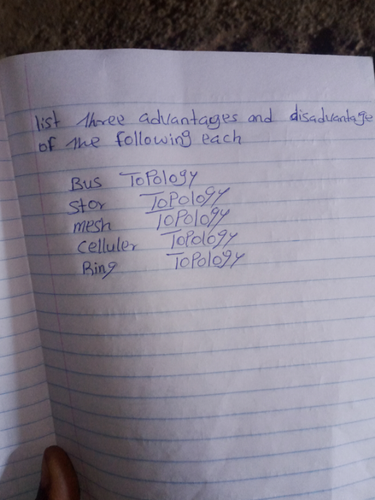 list three advantages and disadvantage
of the following each
Bus Topology
Star Topology
mesh Topology
celluler Topology
Ring Topology